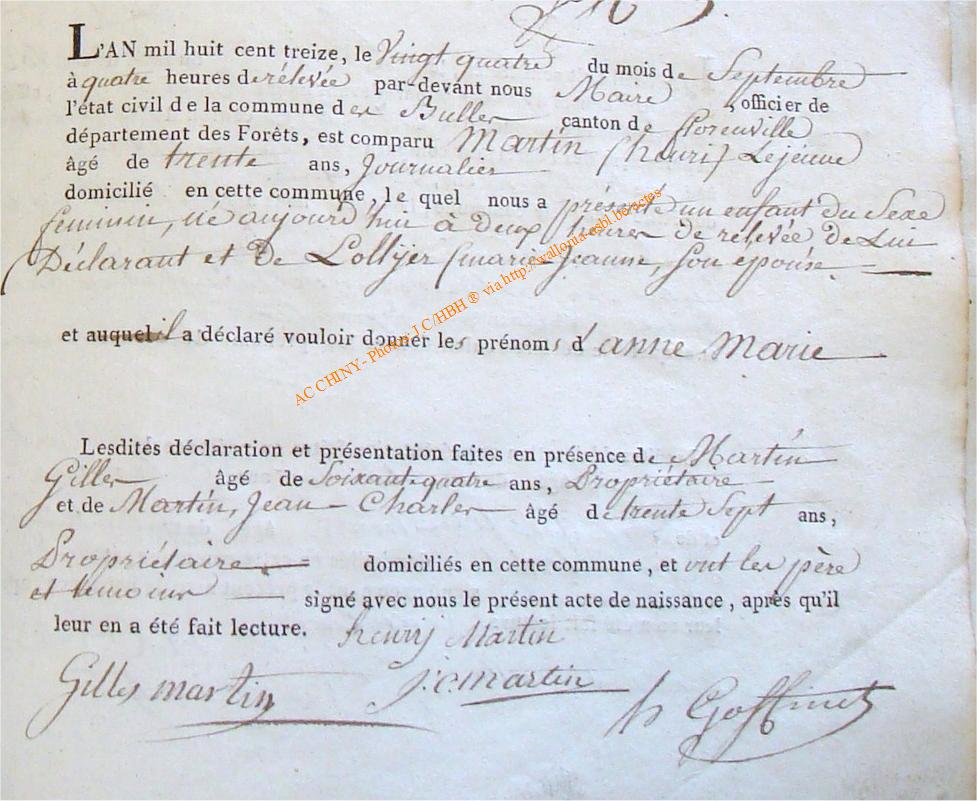 L'AN mil huit cent treize, le Vingt quatre du mois de Septembre
à quatre heures de rélevée par-devant nous Maire officier de
l'état civil de la commune des Bulles canton de florenville
département des Forêts, est comparu Martin (henri) Lejeune
âgé de trente ans, Journalier
domicilié en cette commune, le quel nous a présenté un enfant du Sexe
feminin, né aujourd'hui à deux heures de relevée, de Lui
Déclarant et de Lollijer (marie-Jeanne, Son épouse
et auquel il a déclaré vouloir donner les prénoms d'anne Marie
Lesdites déclaration et présentation faites en présence de Martin
Gilles âgé de Soixante quatre ans, Propriétaire
et de Martin, Jean-Charles âgé de trente Sept ans,
Propriétaire domiciliés en cette commune, et ont les père
et temoins signé avec nous le présent acte de naissance, après qu'il
leur en a été fait lecture. henrij Martin
Gilles martin j.c. martin h Goffinet
AC CHINY - Photos J.C/HBH ® via http://wallonia-asbl.be/actes